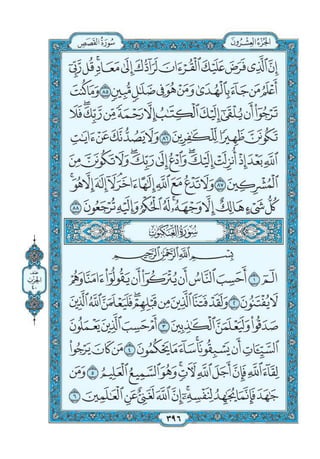 سُورَةُ القَصَصِ
الجُزْءُ العِشْرُونَ
إِنَّ ٱلَّذِى فَرَضَ عَلَيْكَ ٱلْقُرْءَانَ لَرَآدُّكَ إِلَىٰ مَعَادٍ ۚ قُل رَّبِّىٓ
أَعْلَمُ مَن جَآءَ بِٱلْهُدَىٰ وَمَنْ هُوَ فِى ضَلَٰلٍ مُّبِينٍ ٨٥ وَمَا كُنتَ
تَرْجُوٓا۟ أَن يُلْقَىٰٓ إِلَيْكَ ٱلْكِتَٰبُ إِلَّا رَحْمَةً مِّن رَّبِّكَ ۖ فَلَا
تَكُونَنَّ ظَهِيرًا لِّلْكَٰفِرِينَ ٨٦ وَلَا يَصُدُّنَّكَ عَنْ ءَايَٰتِ
ٱللَّهِ بَعْدَ إِذْ أُنزِلَتْ إِلَيْكَ ۖ وَٱدْعُ إِلَىٰ رَبِّكَ ۖ وَلَا تَكُونَنَّ مِنَ
ٱلْمُشْرِكِينَ ٨٧ وَلَا تَدْعُ مَعَ ٱللَّهِ إِلَٰهًا ءَاخَرَ ۘ لَآ إِلَٰهَ إِلَّا هُوَ ۚ
كُلُّ شَىْءٍ هَالِكٌ إِلَّا وَجْهَهُۥ ۚ لَهُ ٱلْحُكْمُ وَإِلَيْهِ تُرْجَعُونَ ٨٨
سُورَةُ العَنكَبُوتِ
بِسْمِ ٱللَّهِ ٱلرَّحْمَٰنِ ٱلرَّحِيمِ
الٓمٓ ١ أَحَسِبَ ٱلنَّاسُ أَن يُتْرَكُوٓا۟ أَن يَقُولُوٓا۟ ءَامَنَّا وَهُمْ
لَا يُفْتَنُونَ ٢ وَلَقَدْ فَتَنَّا ٱلَّذِينَ مِن قَبْلِهِمْ ۖ فَلَيَعْلَمَنَّ ٱللَّهُ ٱلَّذِينَ
صَدَقُوا۟ وَلَيَعْلَمَنَّ ٱلْكَٰذِبِينَ ٣ أَمْ حَسِبَ ٱلَّذِينَ يَعْمَلُونَ
ٱلسَّيِّـَٔاتِ أَن يَسْبِقُونَا ۚ سَآءَ مَا يَحْكُمُونَ ٤ مَن كَانَ يَرْجُوا۟
لِقَآءَ ٱللَّهِ فَإِنَّ أَجَلَ ٱللَّهِ لَـَٔاتٍ ۚ وَهُوَ ٱلسَّمِيعُ ٱلْعَلِيمُ ٥ وَمَن
جَٰهَدَ فَإِنَّمَا يُجَٰهِدُ لِنَفْسِهِۦٓ ۚ إِنَّ ٱللَّهَ لَغَنِىٌّ عَنِ ٱلْعَٰلَمِينَ ٦
٣٩٦